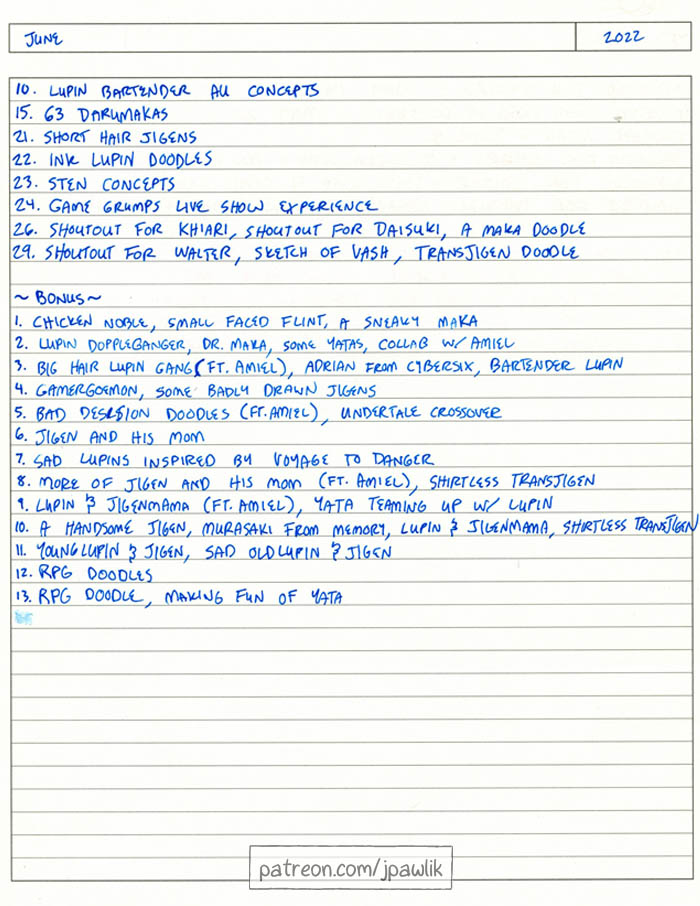 JUNE
2022
10. LUPIN BARTENDER AU CONCEPTS
15. 63 DARUMAKAS
21. SHORT HAIR JIGENS
22. INK LUPIN DOODLES
23. STEN CONCEPTS
24. GAME GRUMPS LIVE SHOW EXPERIENCE
26. SHOUTOUT FOR KHIARI, SHOUTOUT FOR DAISUKI, A MAKA DOODLE
29. SHOUTOUT FOR WALTER, SKETCH OF VASH, TRANSJIGEN DOODLE
~BONUS~
1. CHICKEN NOBLE, SMALL FACED FLINT, A SNEAKY MAKA
2. LUPIN DOPPLEGANGER, DR. MAKA, SOME YATAS, COLLAB W/ AMIEL
3. BIG HAIR LUPIN GANG (FT. AMIEL), ADRIAN FROM CYBERSIX, BARTENDER LUPIN
4. GAMERGOEMON, SOME BADLY DRAWN JIGENS
5. BAD DOODLES (FT. AMIEL), UNDERTALE CROSSOVER
6. JIGEN AND HIS MOM
7. SAD LUPINS INSPIRED BY VOYAGE TO DANGER
8. MORE OF JIGEN AND HIS MOM (FT. AMIEL), SHIRTLESS TRANSJIGEN
9. LUPIN & JIGENMAMA (FT. AMIEL), YATA TEAMING UP W/ LUPIN
10. A HANDSOME JIGEN, MURASAKI FROM MEMORY, LUPIN & JIGENMAMA, SHIRTLESS TRANSJIGEN
11. YOUNG LUPIN & JIGEN, SAD OLD LUPIN & JIGEN
12. RPG DOODLES
13. RPG DOODLE, MAKING FUN OF YATA
patreon.com/jpawlik